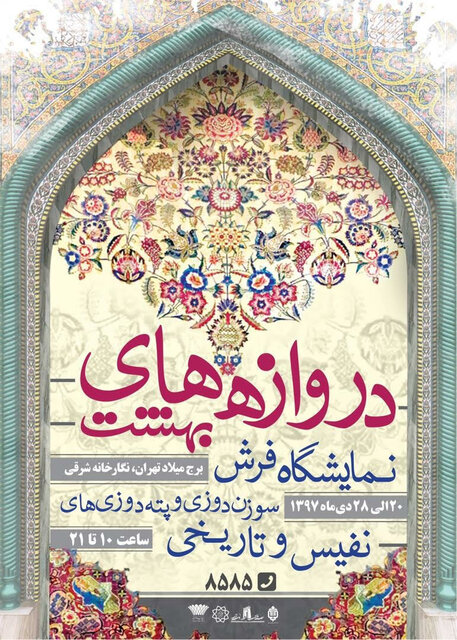 دروازه‌های
بهشت
نمایشگاه فرش
برج میلاد تهران، نگارخانه شرقی
سوزن‌دوزی و پته‌دوزی‌های
۲۰ الی ۲۸ دی ماه ۱۳۹۷
نفیس و تاریخی
ساعت ۱۰ تا ۲۱
۸۵۸۵